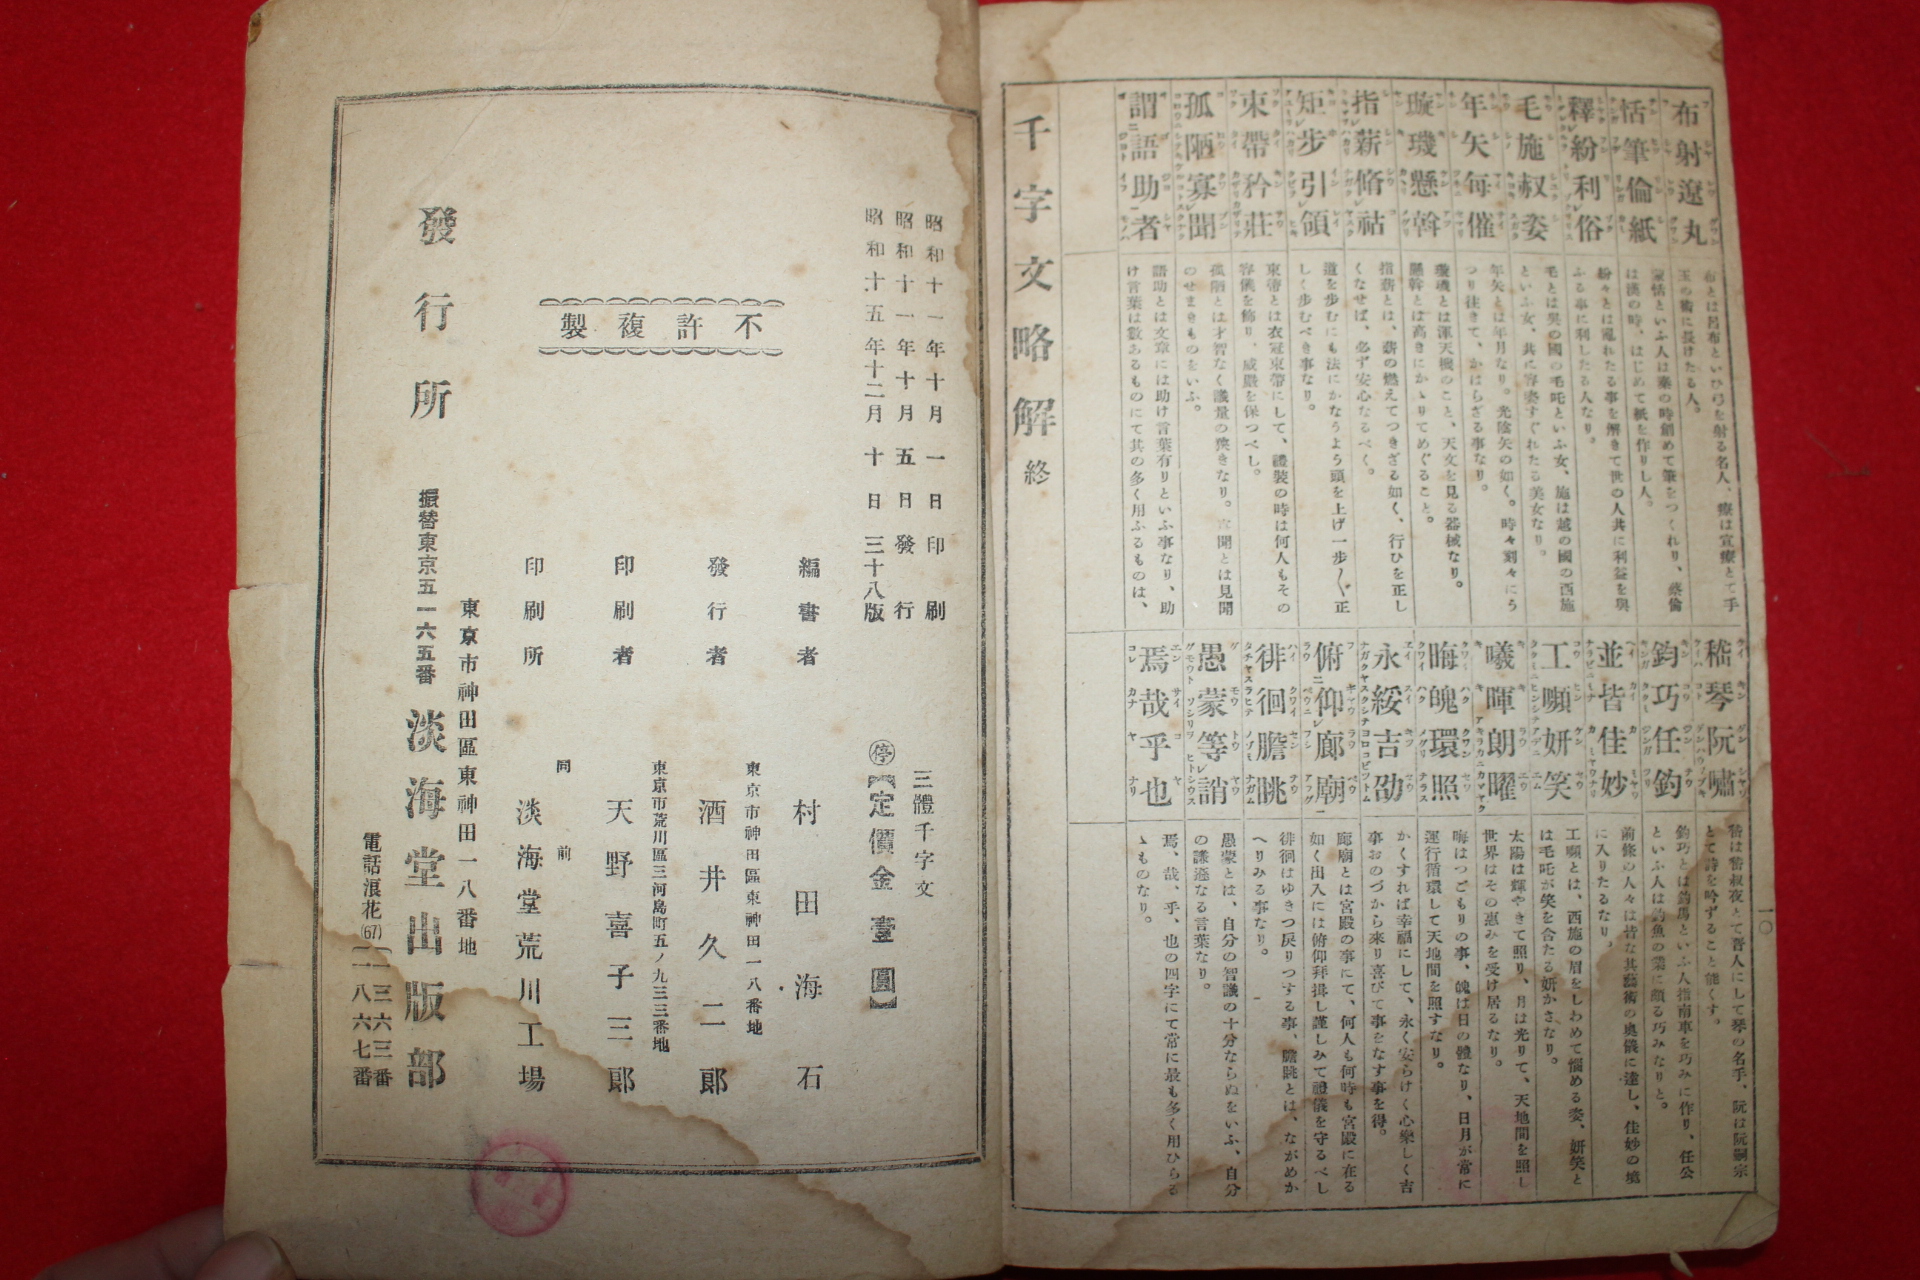 布射遼丸
布とは呂布といひ弓を射る名人、遼は宜遼とて手
玉の術に長けたる人。
恬筆倫紙
蒙恬といふ人は秦の時創めて筆をつくれり、蔡倫
は漢の時、はじめて紙を作りし人。
釋紛利俗
紛々とは亂れたる事を解きて世の人共に利益を與
ふる事に利したる人なり。
毛施叔姿
毛とは吳の國の毛吒といふ女、施は越の國の西施
といふ女、共に容姿すぐれたる美女なり。
年矢每催
年矢とは年月なり。光陰矢の如く。時々刻々にう
つり往きて、かはらざる事なり。
璇璣懸斡
璇璣とは渾天機のこと、天文を見る器械なり。
懸斡とは高きにかゝりてめぐること。
指薪脩祜
指薪とは、薪の燃えてつきざる如く、行ひを正し
くなせば、必ず安心なるべく。
矩步引領
道を步むにも法にかなうよう頭を上げ一步〱正
しく步むべき事なり。
束帶矜莊
束帶とは衣冠束帶にして、禮裝の時は何人もその
容儀を飾り、威嚴を保つべし。
孤陋寡聞
孤陋とは才智なく議量の狹きなり。寡聞とは見聞
のせまきものをいふ。
謂語助者
語助とは文章には助け言葉有りといふ事なり、助
け言葉は數あるものにて其の多く用ふるものは、
嵇琴阮嘯
嵇は嵇叔夜とて晋人にして琴の名手、阮は阮嗣宗
とて詩を吟ずること能くす。
鈞巧任釣
鈞巧とは鈞馬といふ人指南車を巧みに作り、任公
といふ人は釣魚の業に頗る巧みなりと。
並皆佳妙
前條の人々は皆な其藝術の奧儀に達し、佳妙の境
に入りたるなり。
工嚬妍笑
工嚬とは、西施の眉をしわめて惱める姿、妍笑と
は毛吒が笑を含たる妍かさなり。
曦暉朗曜
太陽は輝やきて照り、月は光りて、天地間を照し
世界はその惠みを受け居るなり。
晦魄環照
晦はつごもりの事、魄は日の體なり、日月が常に
運行循環して天地間を照すなり。
永綏吉劭
かくすれば幸福にして、永く安らけく心樂しく吉
事おのづから來り喜びて事をなす事を得。
俯仰廊廟
廊廟とは宮殿の事にて、何人も何時も宮殿に在る
如く出入には俯仰拜揖し謹しみて禮儀を守るべし
徘徊瞻眺
徘徊はゆきつ戾りつする事、瞻眺とは、ながめか
へりみる事なり。
愚蒙等誚
愚蒙とは、自分の智議の十分ならぬをいふ、自分
の謙遜なる言葉なり。
焉哉乎也
焉、哉、乎、也の四字にて常に最も多く用ひらる
ゝものなり。
一〇
千字文略解 終
昭和十一年十月一日印刷
昭和十一年十月五日發行
昭和十五年十二月十日三十八版
三體千字文
停【定價金壹圓】
不許複製
編書者 村田海石
東京市神田區東神田一八番地
發行者 酒井久二郎
東京市荒川區三河島町五ノ九三三番地
印刷者 天野喜子三郎
同前
印刷所 淡海堂荒川工場
東京市神田區東神田一八番地
發行所 淡海堂出版部
振替東京五一六五番
電話浪花(67)
一三六三番
一八六七番